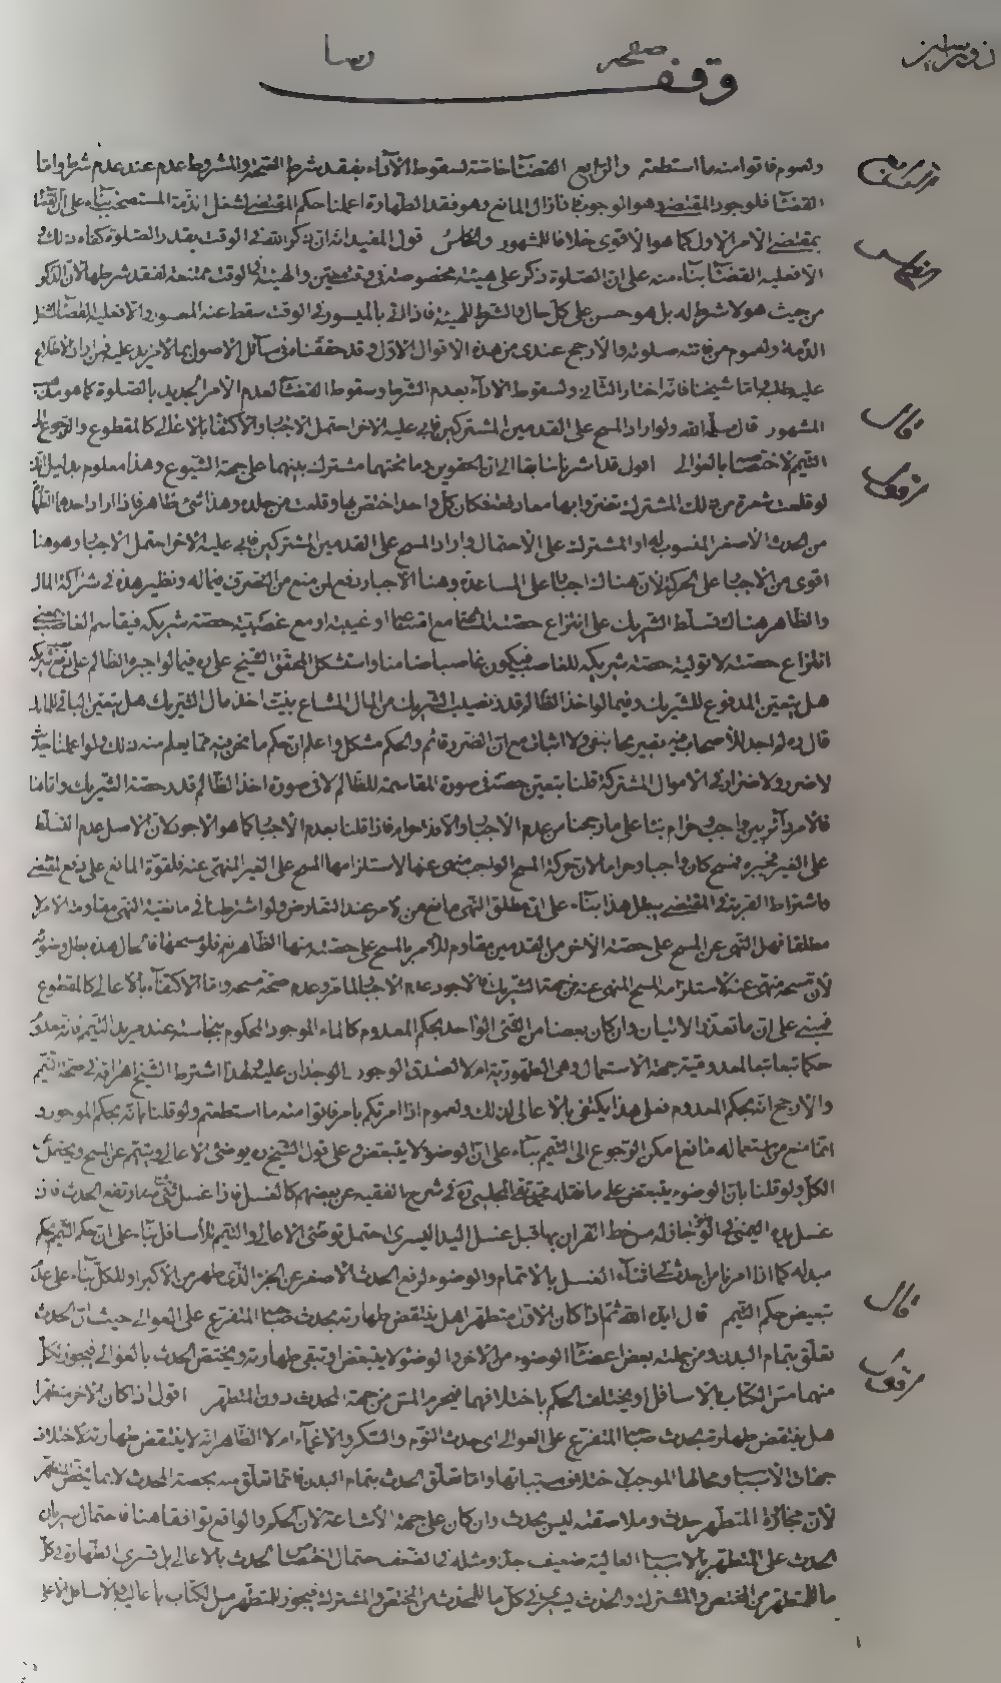 وقف
ولعموم فاتوا منه ما استطعتم والرابع القضاء خاصة لسقوط الاداء بفقد شرط الصحة والمشروط عدم عند عدم شرطه واما
القضاء فلوجود المقتضى وهو الوجوب فاذا زال المانع وهو فقد الطهارة اعملنا حكم المقتضى لشغل الذمة المستصحب بناء على ان القضاء
بمقتضى الامر الاول كما هو الاقوى خلافا للمشهور والخامس قول المفيد انه ان ذكر الله في الوقت بقدر الصلوة كفاه ذلك
الا فعليه القضاء بناء منه على ان الصلوة ذكر على هيئة مخصوصة في وقت معين والهيئة في الوقت ممتنعة لفقد شرطها لان الذكر
من حيث هو لا شرط له بل هو حسن على كل حال فاذا اتى بالميسور في الوقت سقط عنه المعسور والا فعليه القضاء لشغل
الذمة ولعموم من فاتته صلوة والارجح عندي من هذه الاقوال الاول وقد حققنا في مسائل الاصول بما لا مزيد عليه فمن اراد الاطلاع
عليه طلبه واما شيخنا فانه اختار الثاني ولسقوط الاداء بعدم الشرط وسقوط القضاء لعدم الامر الجديد بالصلوة كما هو
المشهور قال سلمه الله ولو اراد المسح على القدمين المشتركين فابى عليه الاخر احتمل الاجبار والاكتفاء بالاعالي كالمقطوع والرجوع الى
التيمم لاختصاصه بالعوالي اقول قد اشرنا سابقا الى ان الحقوين وما تحتهما مشترك بينهما على جهة الشيوع وهذا معلوم بدليل انك
لو قلعت شعرة من تلك المشتركة تضررا بها معا دفعة فكان كل واحد اختص بها وقلعت من جلده وهذا شئ ظاهر فاذا اراد احدهما الطهارة
من الحدث الاصغر المنسوب له او المشترك على الاحتمال واراد المسح على القدمين المشتركين فابى عليه الاخر احتمل الاجبار وهو هنا
اقوى من الاجبار على الحركة لان هناك اجبار على المساعدة وهنا الاجبار رفع لمن منع من التصرف فيما له ونظير هذه في شراكة المال
والظاهر هناك تسلط الشريك على انتزاع حصته المشاع مع امتناعه او غيبته او مع غصبية حصة شريكه فيقاسم الغاصب
انتزاع حصته لا تولية حصة شريكه للغاصب فيكون غاصبا ضامنا واستشكل المحقق الشيخ على ره فيما لو اجبره الظالم على دفع
هل يتعين المدفوع للشريك وفيما لو اخذ الظالم قدر نصيب الشريك من المال المشاع بنية اخذ مال الشريك هل يتعين الباقي للمالك
قال ره لم اجد للاصحاب فيه تصريحا بنفي ولا اثبات مع ان الضرر قائم والحكم مشكل واعلم ان حكم ما نحن فيه مما يعلم منه ذلك ولو اعملنا حديث
لا ضرر ولا ضرار في الاموال المشتركة قلنا بتعين حصته في صورة المقاسمة للظالم لا في صورة اخذ الظالم قدر حصة الشريك واما هنا
فالامر دائر بين واجب وحرام بنا على ما رجحنا من عدم الاجبار والا فذا حرام فاذا قلنا بعدم الاجبار كما هو الاجود لان الاصل عدم التسلط
على الغير فمسح كان واجبا وحراما لان حركة المسح الواجب منهى عنها لاستلزامها المسح على الغير المنهى عنه فلقوة المانع على دفع المقتضى
واشتراط القربة في المقتضى يبطل هذا بناء على ان مطلق النهى مانع من الامر عند التعارض ولو اشترطنا في مانعية النهى مقاومة الامر
مطلقا فهل النهى عن المسح على حصة الاخر من القدمين مقاوم للامر بالمسح على حصته منها الظاهر نعم فلو مسحهما والحال هذه بطل وضوئه
لان مسحه منهى عنه لاستلزامه المسح المنهى عنه من جهة الشريك فالاجود عدم الاجبار لما مر وعدم صحة مسحه واما الاكتفاء بالاعالي كالمقطوع
فمبنى على ان ما تعذر الاتيان وان كان بعضا من الشئ الواحد بحكم المعدوم كالماء الموجود المحكوم بنجاسته عند مريد التيمم فانه معدوم
حكما تبعا لمعدومية جهة الاستعمال وهي الطهورية ام لا لصدق الوجود والوجدان عليه ولهذا اشترط الشيخ اهراقه في صحة التيمم
والارجح انه بحكم المعدوم فعلى هذا يكتفى بالاعالى لذلك ولعموم اذا امرتكم بامر فاتوا منه ما استطعتم ولو قلنا بانه بحكم الموجود و
انما منع من استعماله مانع امكن الرجوع الى التيمم بناء على ان الوضوء لا يتبعض وعلى قول الشيخ ره يوضئ الاعالي ويتيمم عن المسح ويحتمل
الكل ولو قلنا بان الوضوء يتبعض على ما نقله محمد تقي المجلسي ره في شرح الفقيه عن بعضهم كالغسل فاذا غسل شئ منه ارتفع الحدث فان
غسل يده اليمنى في الوضوء جاز له مس خط القران بها قبل غسل اليد اليسرى احتمل توضئ الاعالي والتيمم للاسافل بناء على ان حكم التيمم بحكم
مبدله كما اذا امرنا من احدث في اثناء الغسل بالاتمام والوضوء لرفع الحدث الاصغر عن الجزء الذي طهر من الاكبر او للكل بناء على عدم
تبعيض حكم التيمم قال ايده الله ثم اذا كان الاخر متطهرا هل ينتقض طهارته بحدث صاحبه المتفرع على العوالي حيث ان الحدث
تعلق بتمام البدن ومن جملته بعض اعضاء الوضوء من الاخر والوضوء لا يتبعض او تبقى طهارته ويختص الحدث بالعوالي فيجوز لكل
منهما مس الكتاب بالاسافل او يختلف الحكم باختلافهما فيحرم المس من جهة المحدث دون المتطهر اقول اذا كان الاخر متطهرا
هل ينتقض طهارته بحدث صاحبه المتفرع على العوالي اى حدث النوم والسكر والاغماء ام لا الظاهر انه لا ينتقض طهارته لاختلاف
جهات الاسباب ومحالها الموجب لاختلاف مسبباتها واما تعلق الحدث بتمام البدن فانما تعلق منه بحصة المحدث لا بما يختص المتطهر
لان مجاورة المتطهر حدث وملاصقته ليس بحدث وان كان على جهة الاشاعة لان الحكم والواقع توافقا هنا فاحتمال سريان
الحدث على المتطهر بالاسباب العالية ضعيف جدا ومثله في الضعف احتمال اختصاص الحدث بالاعالي بل تسرى الطهارة في كل
ما للمتطهر من المختص والمشترك والحدث يسرى في كل ما للمحدث من المختص والمشترك فيجوز للمتطهر مس الكتاب باعاليه والاسافل
قال
قال